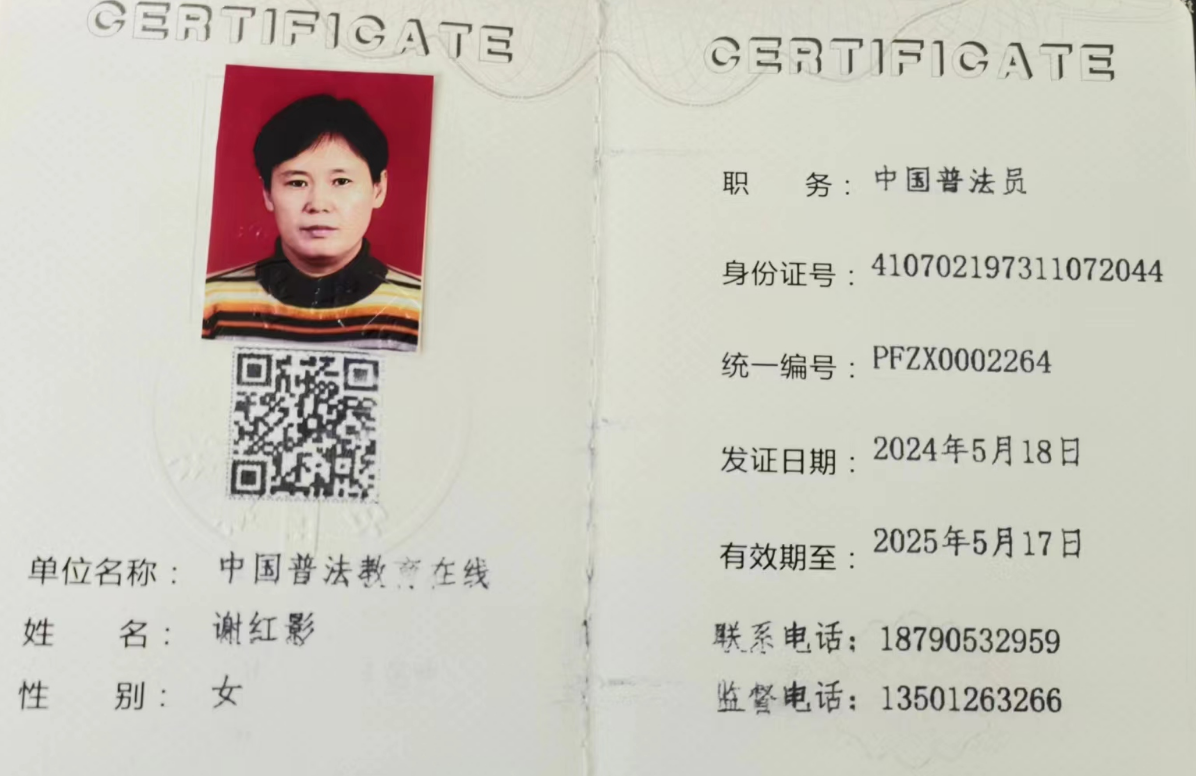 CERTIFICATE
单位名称：中国普法教育在线
姓名：谢红影
性别：女
CERTIFICATE
职务：中国普法员
身份证号：410702197311072044
统一编号：PFZX0002264
发证日期：2024年5月18日
有效期至：2025年5月17日
联系电话：18790532959
监督电话：13501263266